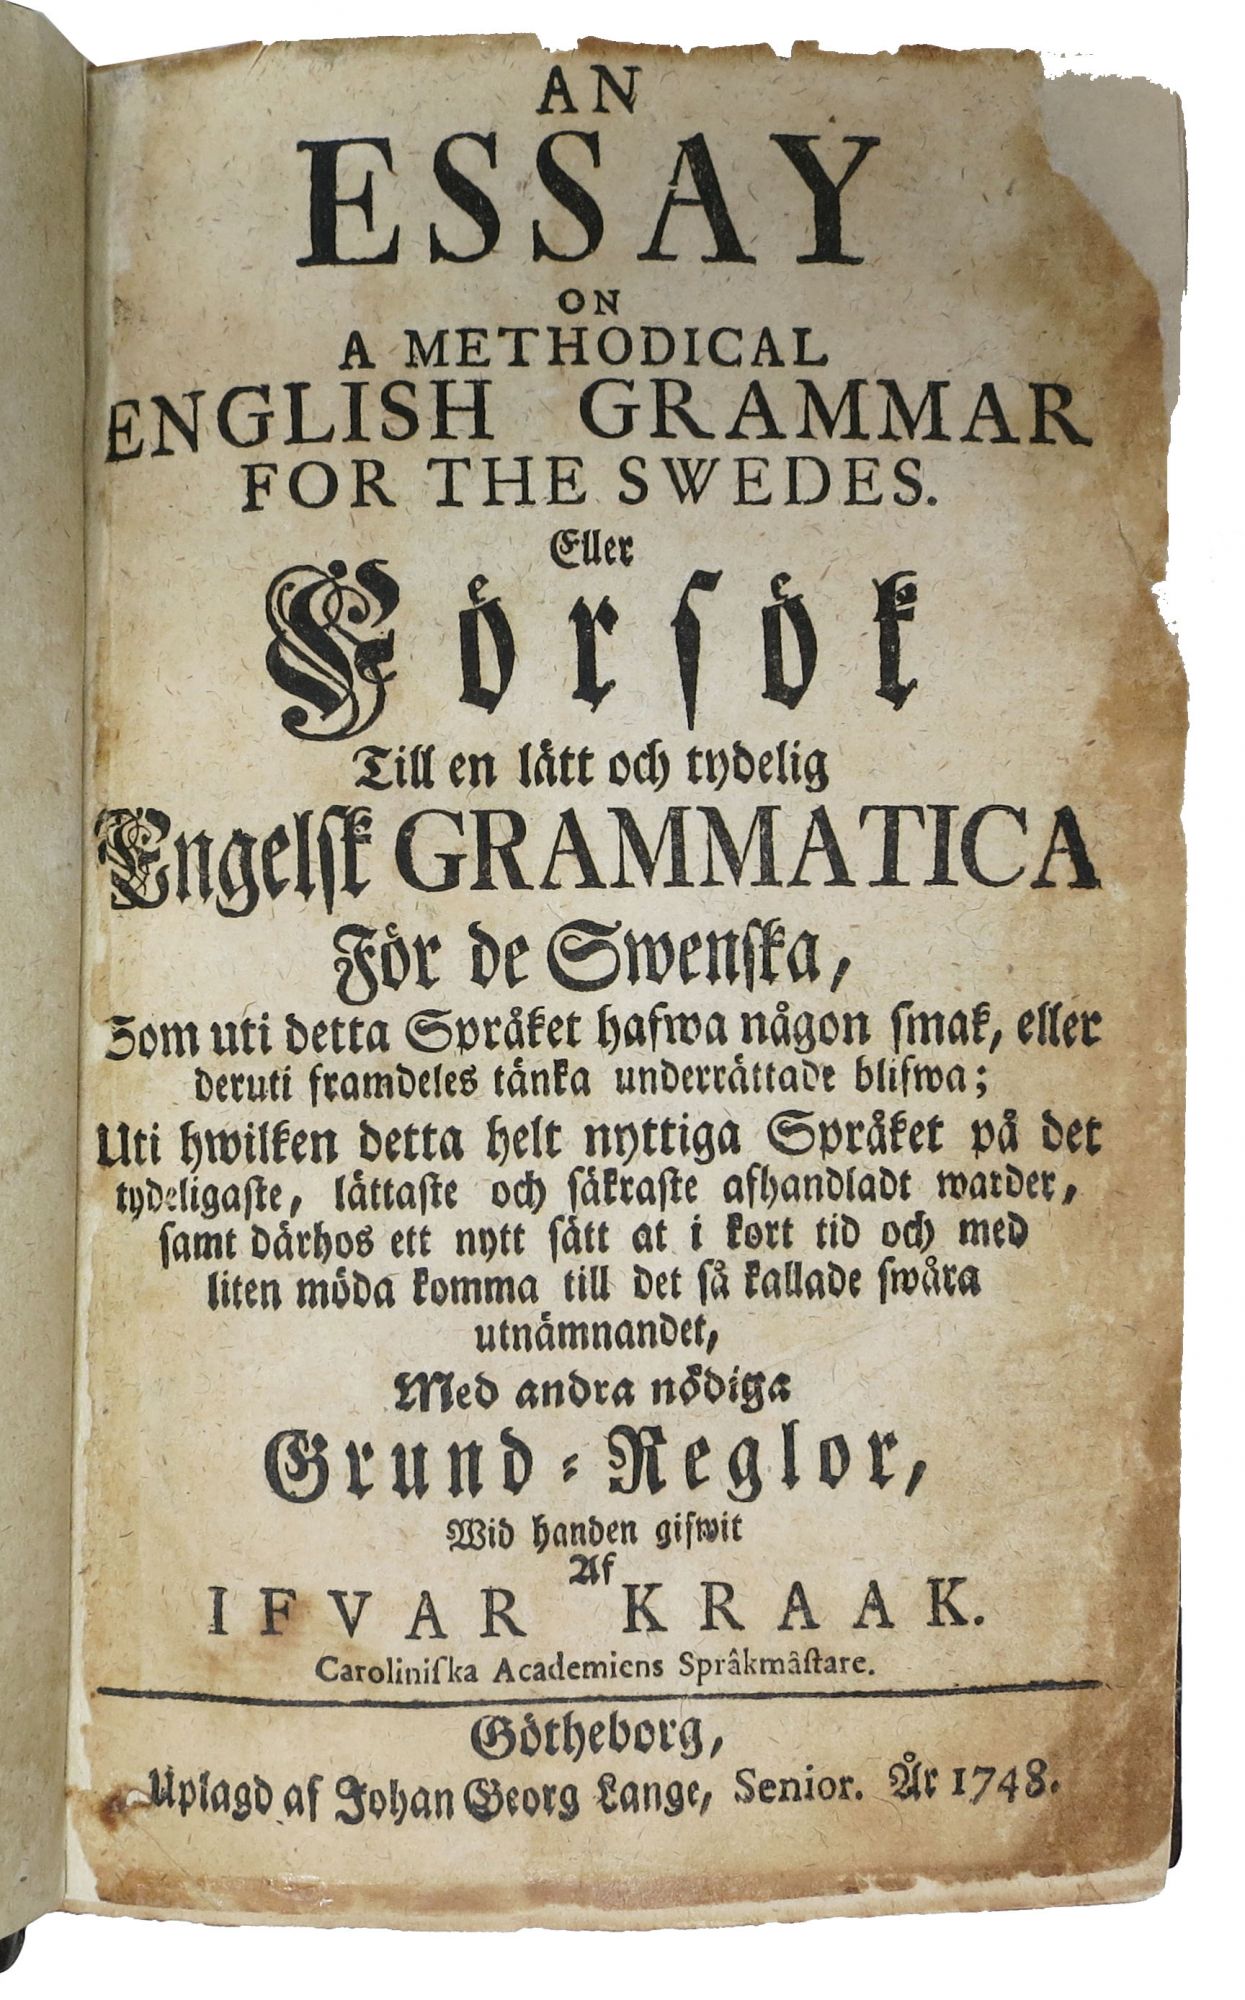 AN
ESSAY
ON
A METHODICAL
ENGLISH GRAMMAR
FOR THE SWEDES.
Eller
Förſök
Till en lätt och tydelig
Engelſk GRAMMATICA
För de Swenſka,
Som uti detta Språket hafwa någon ſmak, eller
deruti framdeles tänka underrättade blifwa;
Uti hwilken detta helt nyttiga Språket på det
tydeligaſte, lättaſte och ſäkraſte afhandladt warder,
ſamt därhos ett nytt ſätt at i kort tid och med
liten möda komma till det ſå kallade ſwåra
utnämnandet,
Med andra nödiga
Grund-Reglor,
Wid handen gifwit
Af
IFVAR KRAAK.
Caroliniſka Academiens Språkmâſtare.
Götheborg,
Uplagd af Johan Georg Lange, Senior. År 1748.